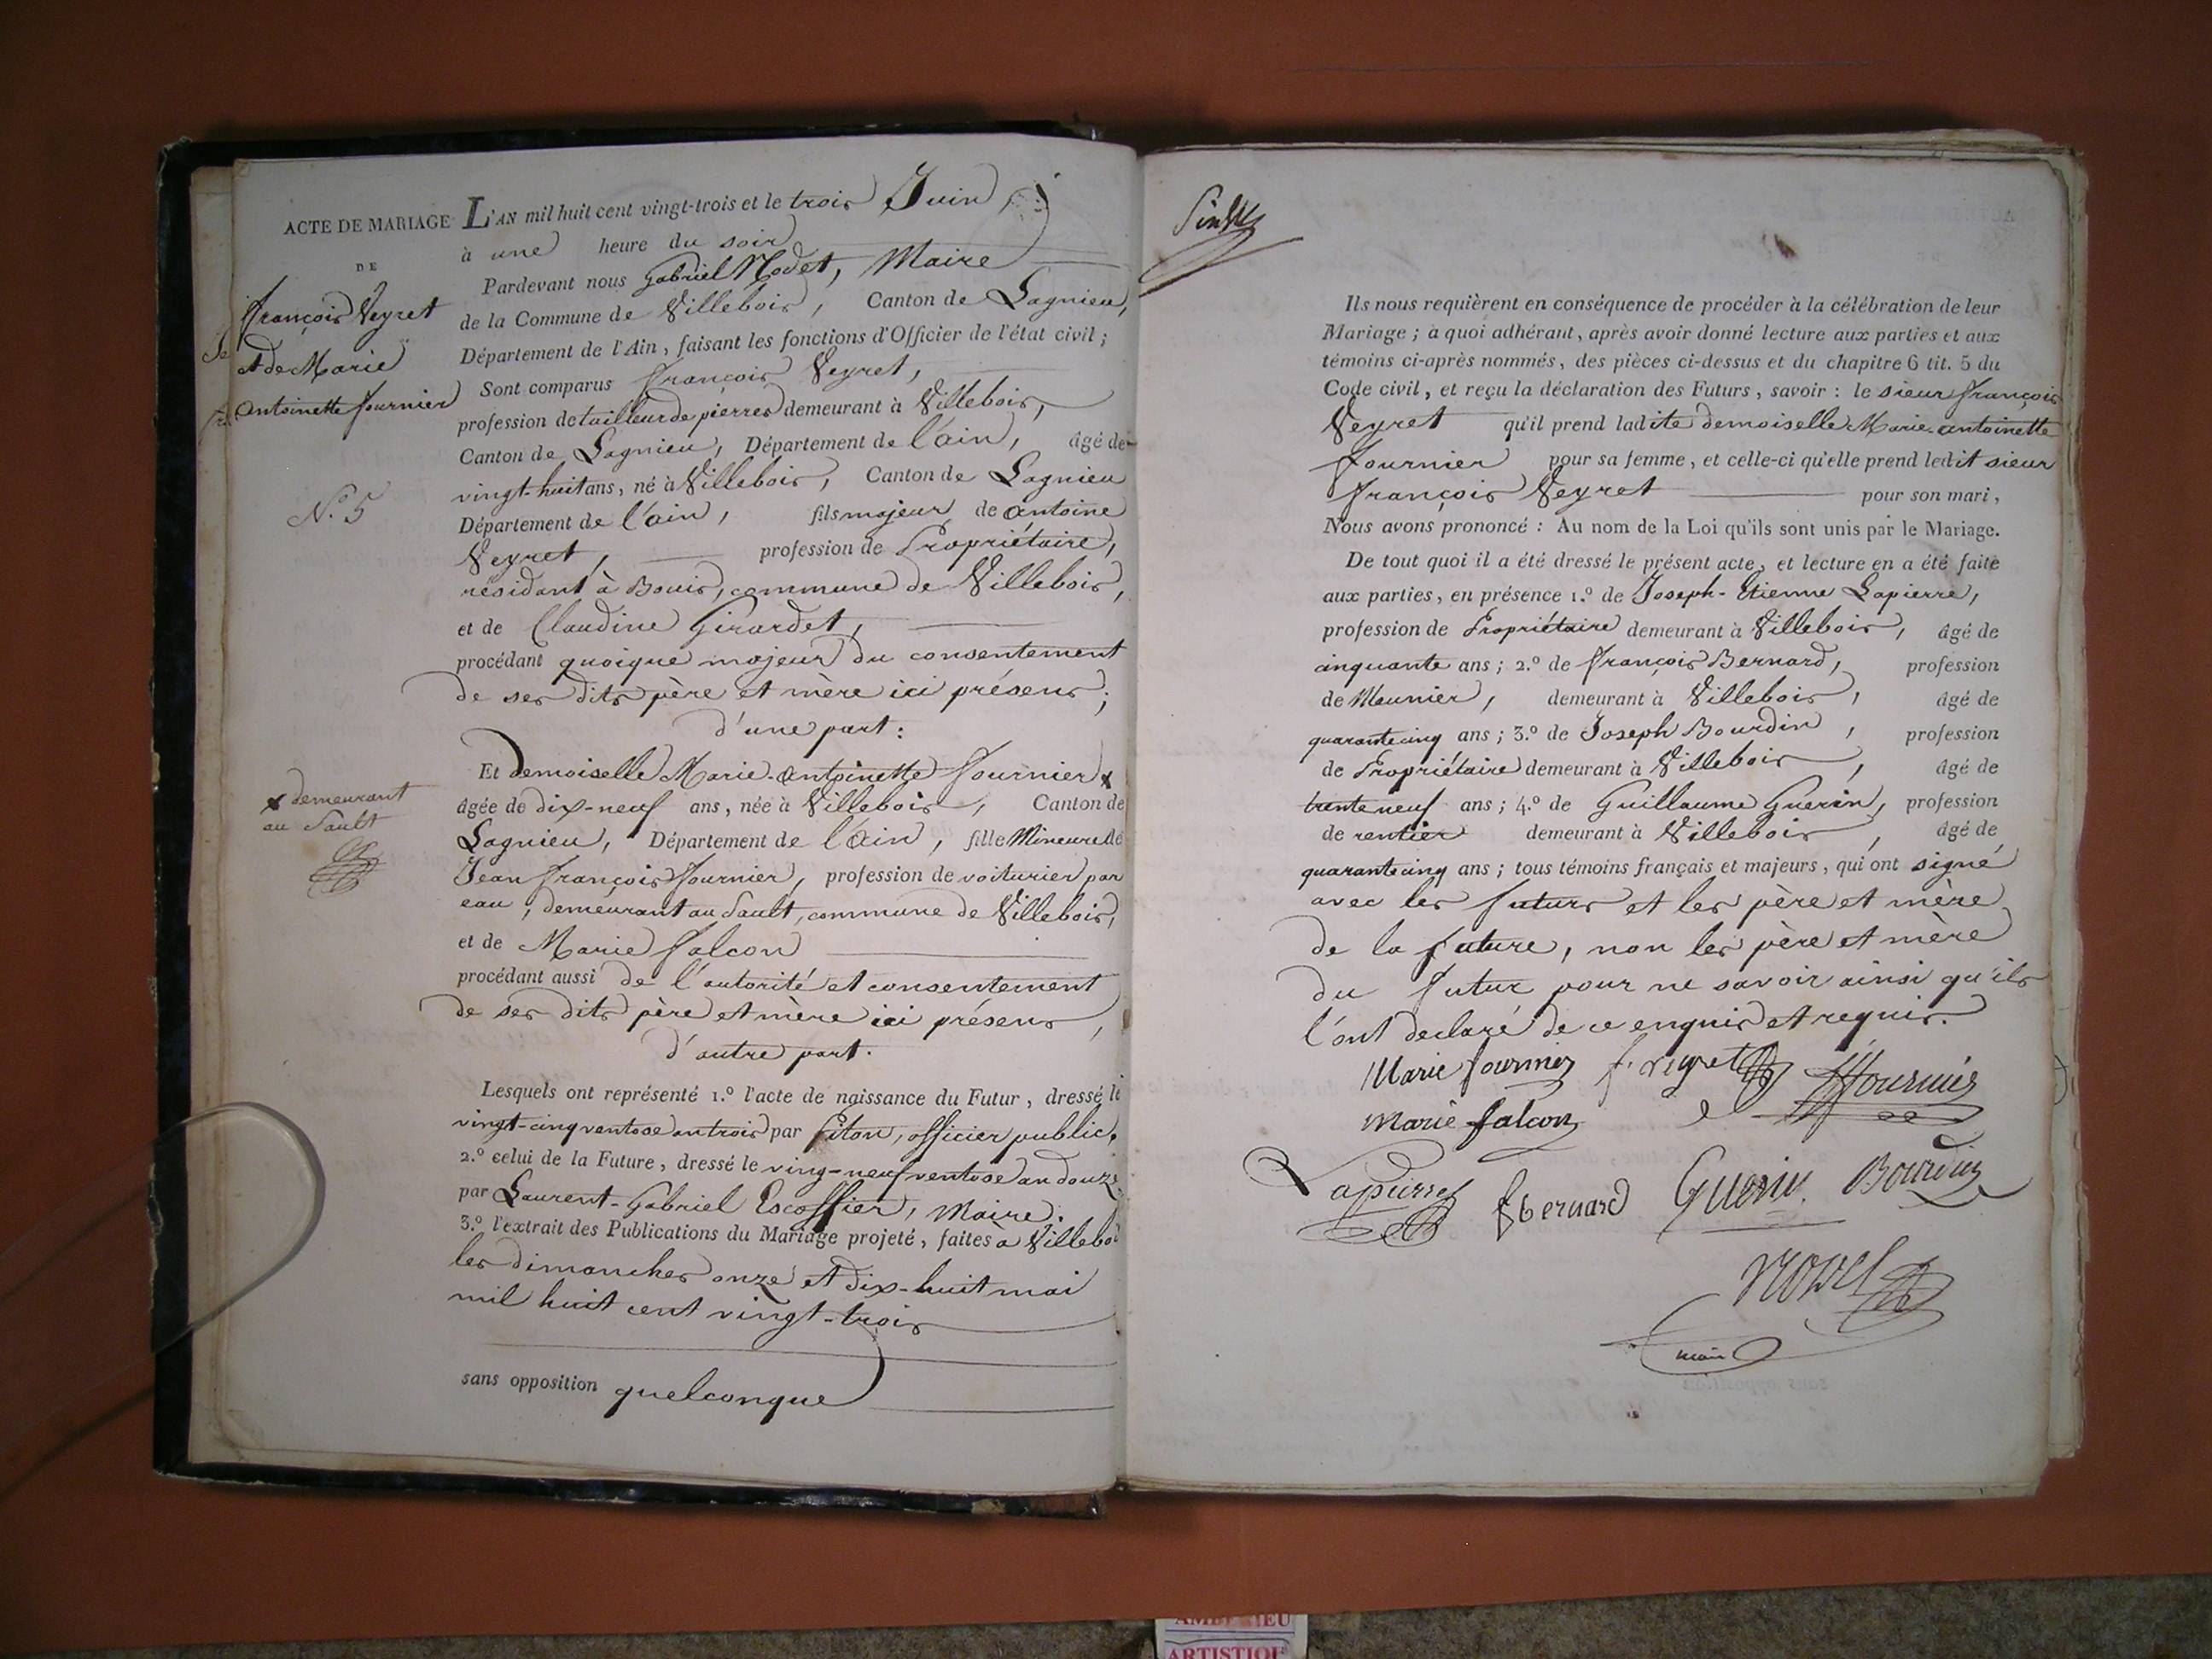 ACTE DE MARIAGE
DE
François Veyret
et de Marie
antoinette fournier
N.º 5
x demeurant
au Sault
L'AN mil huit cent vingt-trois et le trois Juin
à une heure du soir
Pardevant nous Gabriel Nodet, Maire
de la Commune de Villebois, Canton de Lagnieu,
Département de l'Ain, faisant les fonctions d'Officier de l'état civil;
Sont comparus françois Veyret,
profession de tailleur de pierres demeurant à Villebois,
Canton de Lagnieu, Département de l'ain, âgé de
vingt-huit ans, né à Villebois, Canton de Lagnieu
Département de l'ain, fils majeur de antoine
Veyret, profession de Propriétaire,
résidant à Bouis, commune de Villebois,
et de Claudine Girardet,
procédant quoique majeur du consentement
de ses dits père et mère ici présens;
d'une part:
Et demoiselle Marie-antoinette fournier x
âgée de dix-neuf ans, née à Villebois, Canton de
Lagnieu, Département de l'ain, fille Mineure de
Jean françois fournier, profession de voiturier par
eau, demeurant au Sault, commune de Villebois,
et de Marie falcon
procédant aussi de l'autorité et consentement
de ses dits père et mère ici présens,
d'autre part.
Lesquels ont représenté 1.º l'acte de naissance du Futur, dressé le
vingt-cinq ventose an trois par fiton, officier public.
2.º celui de la Future, dressé le ving-neuf ventose an douze
par Laurent-Gabriel Escoffier, Maire.
3.º l'extrait des Publications du Mariage projeté, faites a Villebois
les dimanches onze et dix-huit mai
mil huit cent vingt-trois
sans opposition quelconque
Ils nous requièrent en conséquence de procéder à la célébration de leur
Mariage; à quoi adhérant, après avoir donné lecture aux parties et aux
témoins ci-après nommés, des pièces ci-dessus et du chapitre 6 tit. 5 du
Code civil, et reçu la déclaration des Futurs, savoir: le sieur françois
Veyret qu'il prend ladite demoiselle Marie-antoinette
fournier pour sa femme, et celle-ci qu'elle prend ledit sieur
françois Veyret pour son mari,
Nous avons prononcé: Au nom de la Loi qu'ils sont unis par le Mariage.
De tout quoi il a été dressé le présent acte, et lecture en a été faite
aux parties, en présence 1.º de Joseph-Etienne Lapierre,
profession de Propriétaire demeurant à Villebois, âgé de
cinquante ans; 2.º de françois Bernard, profession
de Meunier, demeurant à Villebois, âgé de
quarante cinq ans; 3.º de Joseph Bourdin, profession
de Propriétaire demeurant à Villebois, âgé de
trente neuf ans; 4.º de Guillaume Guerin, profession
de rentier demeurant à Villebois, âgé de
quarante cinq ans; tous témoins français et majeurs, qui ont signé
avec les futurs et les père et mère
de la future, non les père et mère
du futur pour ne savoir ainsi qu'ils
l'ont declaré de ce enquis et requis.
Marie fournier f. veyret fournier
Marie falcon
Lapierre fbernard Guerin Bourdin
Nodet
maire
ARTISTIQUE